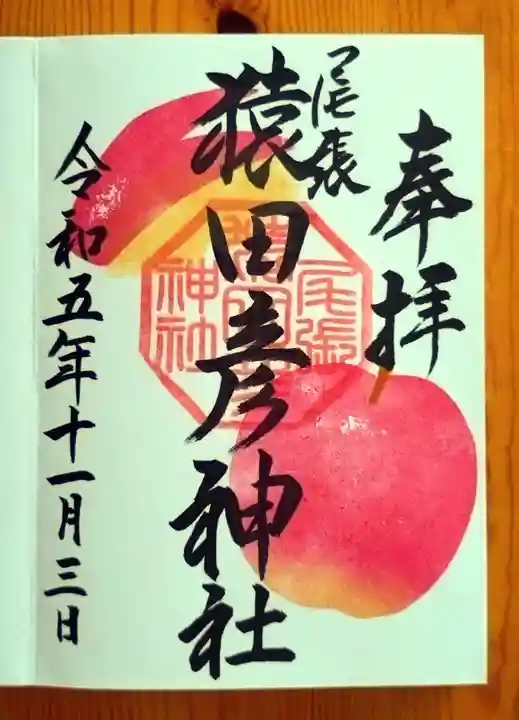 奉拝
尾張
猿田彦神社
尾張
猿田彦
神社
令和五年十一月三日